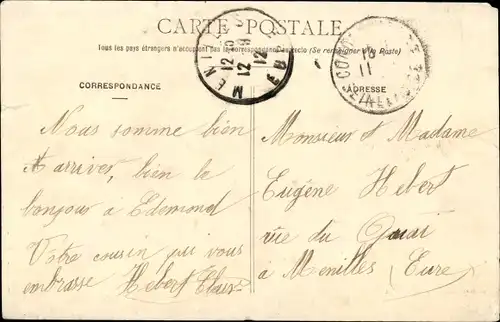 CARTE POSTALE
Tous les pays étrangers n'acceptent pas la correspondance au recto (Se renseigner à la Poste)
CORRESPONDANCE
ADRESSE
Nous somme bien
arrives, bien le
bonjour à Edemond
Votre cousin qui vous
embrasse Hebert Clair
Monsieur et Madame
Eugène Hebert
rue du Quai
à Menilles (Eure)
MENIL
12
12
EURE
11